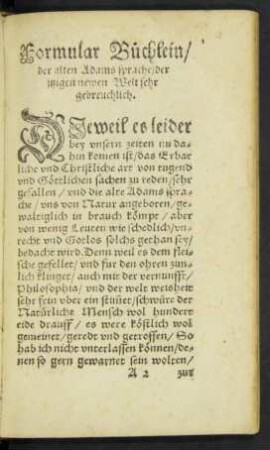 Formular Büchlein/
der alten Adams sprache/der
itzigen newen Welt sehr
gebreuchlich.
DJeweil es leider
bey vnsern zeiten nu da-
hin komen ist/das Erbar
liche vnd Christliche art von tugend
vnd Göttlichen sachen zu reden/sehr
gefallen / vnd die alte Adams spra-
che / vns von Natur angeboren/ge-
waltiglich in brauch kömpt / aber
von wenig Leuten wie schedlich/vn-
recht vnd Gotlos solchs gethan sey/
bedacht wird. Denn weil es dem flei-
sche gefellet/ vnd fur den ohren zim-
lich klinget/ auch mit der vernunfft/
Philosophia/ vnd der welt weisheit
sehr fein vber ein stimet/schwüre der
Natürliche Mensch wol hundert
eide drauff/ es were köstlich wol
gemeinet/ geredt vnd getroffen/ So
hab ich nicht vnterlassen können/de-
nen so gern gewarnet sein wolten/
A 2 zur